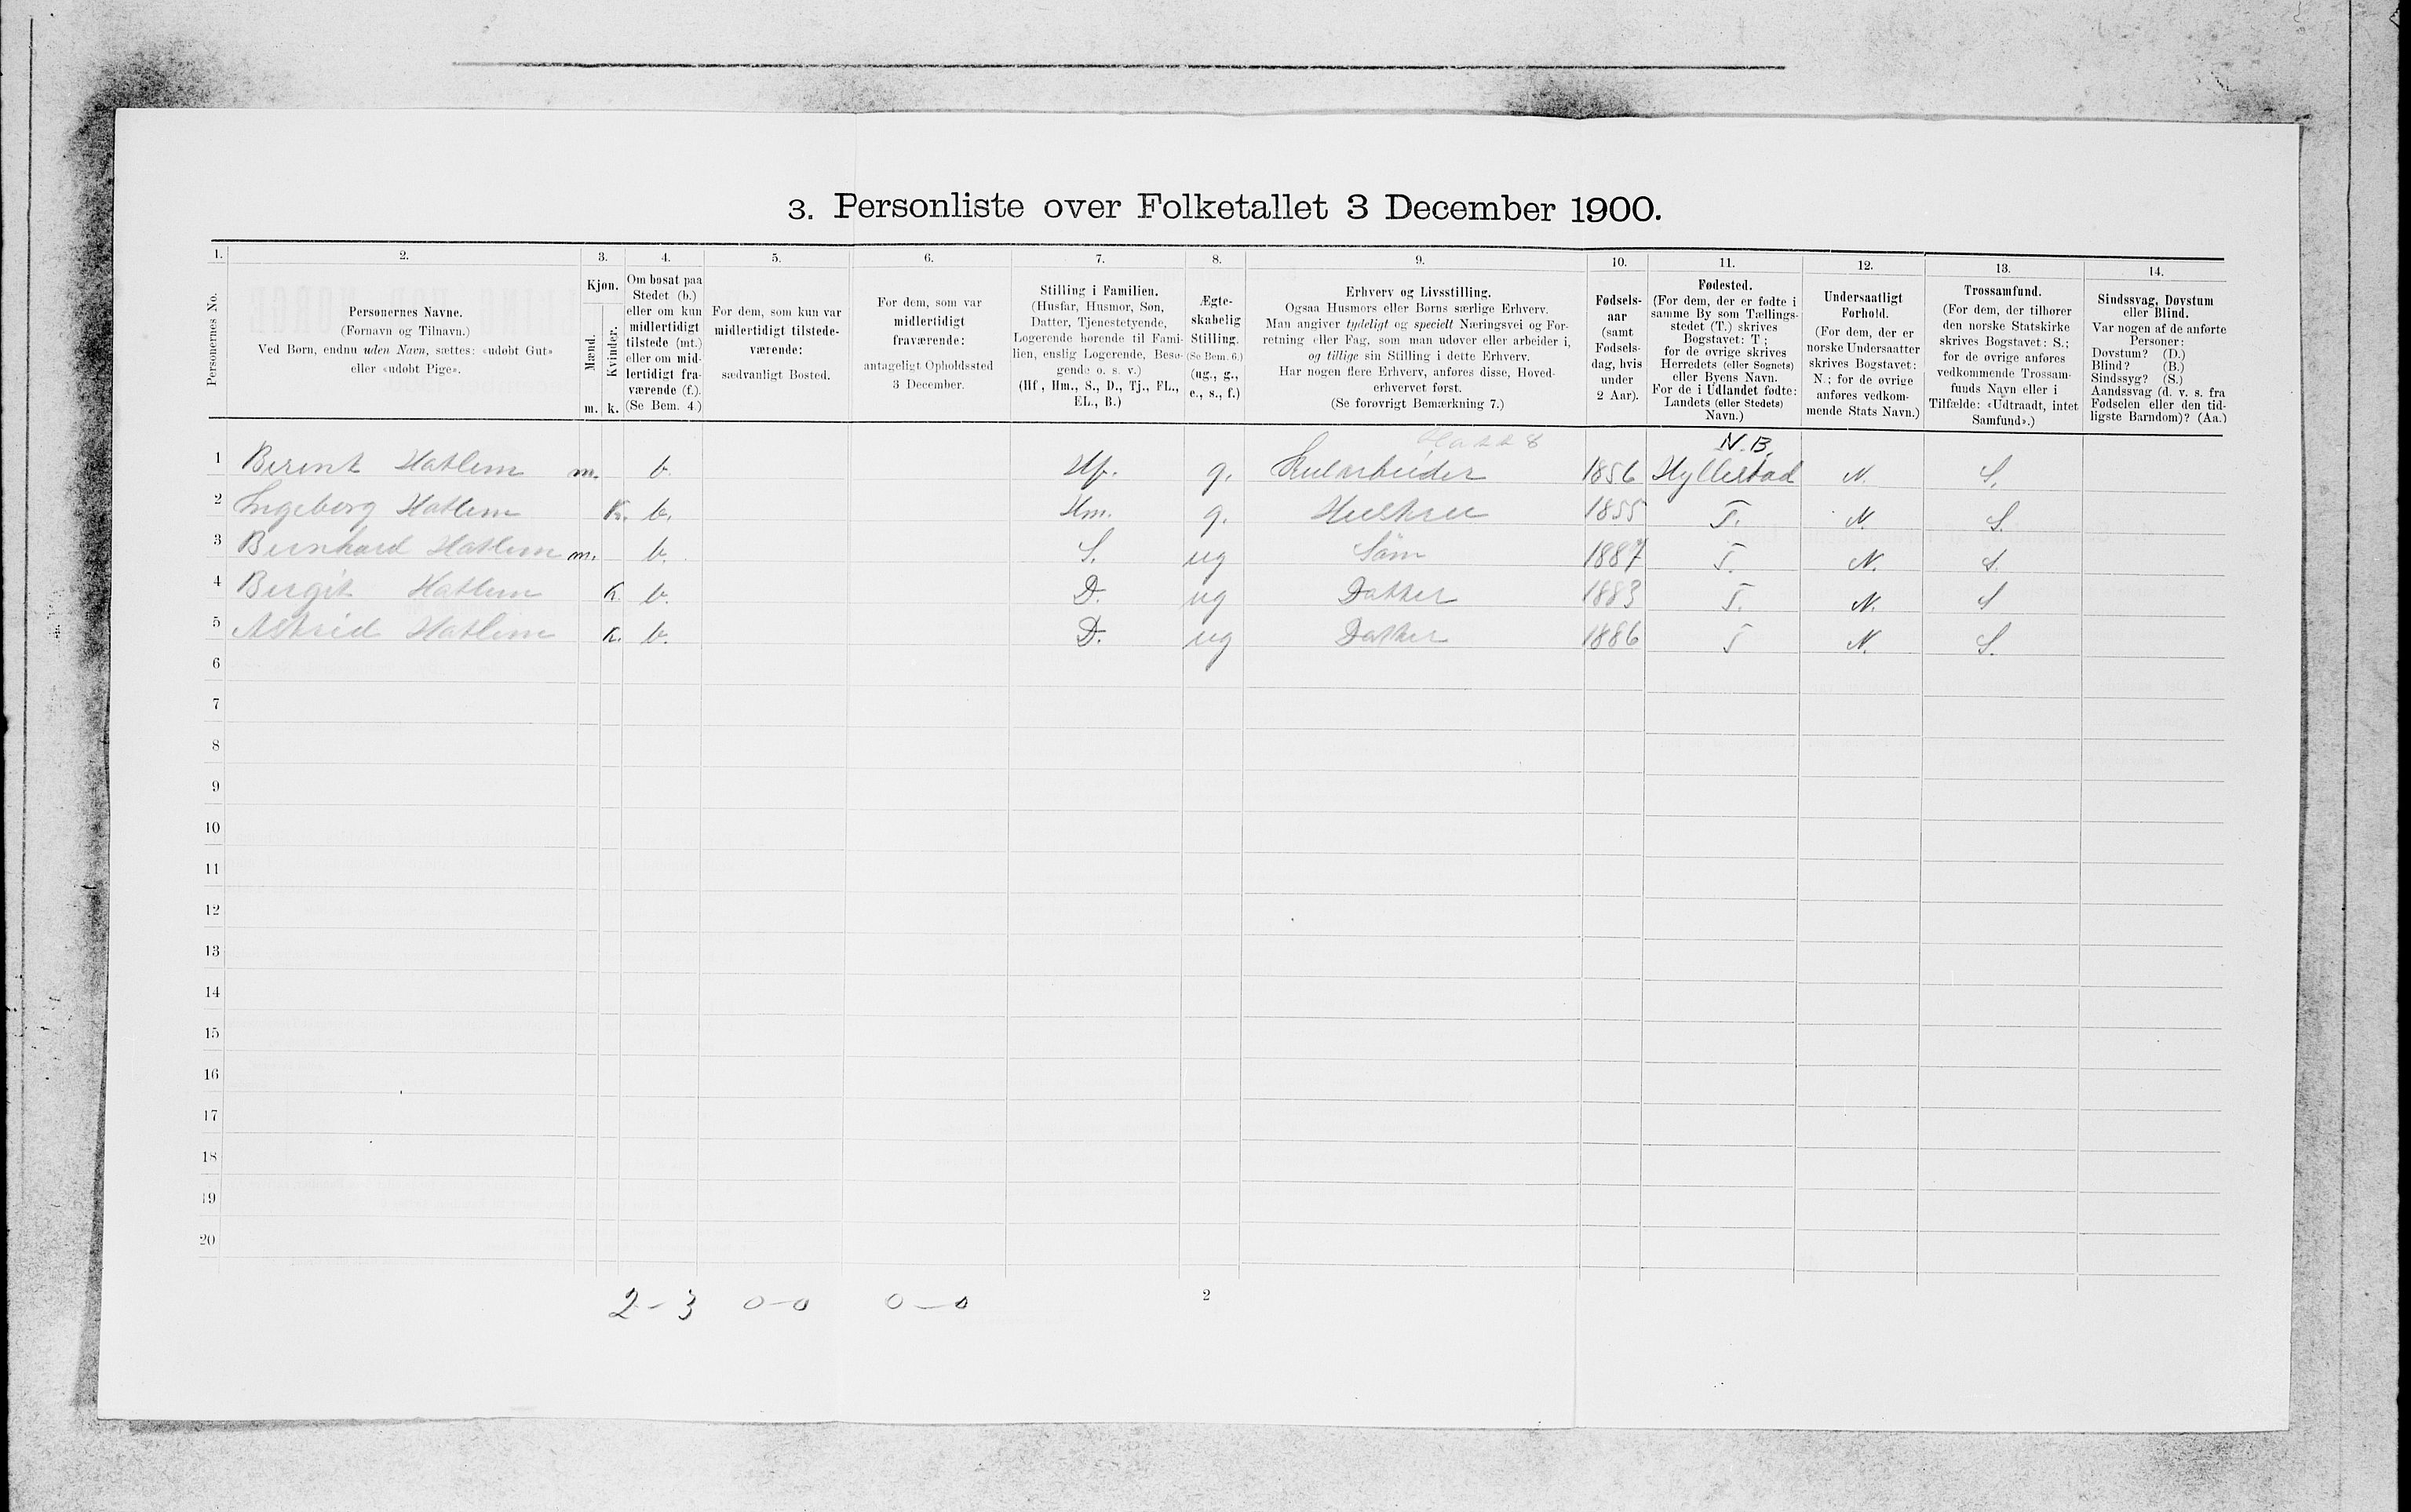 3. Personliste over Folketallet 3 December 1900.
1. 2. 3. 4. 5. 6. 7. 8. 9. 10. 11. 12. 13. 14.
Personernes No.
Personernes Navne.
(Fornavn og Tilnavn.)
Ved Børn, endnu uden Navn, sættes: «udøbt Gut»
eller «udøbt Pige».
Kjøn.
Mænd.
Kvinder.
m. k.
Om bosat paa
Stedet (b.)
eller om kun
midlertidigt
tilstede (mt.)
eller om mid-
lertidigt fra-
værende (f.).
(Se Bem. 4.)
For dem, som kun var
midlertidigt tilstede-
værende:
sædvanligt Bosted.
For dem, som var
midlertidigt
fraværende:
antageligt Opholdssted
3 December.
Stilling i Familien.
(Husfar, Husmor, Søn,
Datter, Tjenestetyende,
Logerende hørende til Fami-
lien, enslig Logerende, Besø-
gende o. s. v.)
(Hf., Hm., S., D., Tj., FL.,
EL., B.)
Ægte-
skabelig
Stilling.
(Se Bem. 6.)
(ug., g.,
e., s., f.)
Erhverv og Livsstilling.
Ogsaa Husmors eller Børns særlige Erhverv.
Man angiver tydeligt og specielt Næringsvei og For-
retning eller Fag, som man udøver eller arbeider i,
og tillige sin Stilling i dette Erhverv.
Har nogen flere Erhverv, anføres disse, Hoved-
erhvervet først.
(Se forøvrigt Bemærkning 7.)
Fødsels-
aar
(samt
Fødsels-
dag, hvis
under
2 Aar).
Fødested.
(For dem, der er fødte i
samme By som Tællings-
stedet (T.) skrives
Bogstavet: T.;
for de øvrige skrives
Herredets (eller Sognets)
eller Byens Navn.
For de i Udlandet fødte:
Landets (eller Stedets)
Navn.)
Undersaatligt
Forhold.
(For dem, der er
norske Undersaatter
skrives Bogstavet:
N.; for de øvrige
anføres vedkom-
mende Stats Navn.)
Trossamfund.
(For dem, der tilhører
den norske Statskirke
skrives Bogstavet: S.;
for de øvrige anføres
vedkommende Trossam-
funds Navn eller i
Tilfælde: «Udtraadt, intet
Samfund».)
Sindssvag, Døvstum
eller Blind.
Var nogen af de anførte
Personer:
Døvstum? (D.)
Blind? (B.)
Sindssyg? (S.)
Aandssvag (d. v. s. fra
Fødselen eller den tid-
ligste Barndom)? (Aa.)
N.B.
1 Berent Hatlem m. b. Hf. g. 1856 Hyllestad N. S.
2 Ingeborg Hatlem k. b. Hm. g. Hustru 1855 T. N. S.
3 Bernhard Hatlem m. b. S. ug Søn 1887 T. N. S
4 Bergit Hatlem k. b. D. ug Datter 1883 T. N. S
5 Astrid Hatlem k. b. D. ug Datter 1886 T N. S.
6
7
8
9
10
11
12
13
14
15
16
17
18
19
20
2-3 0-0 0-0 2